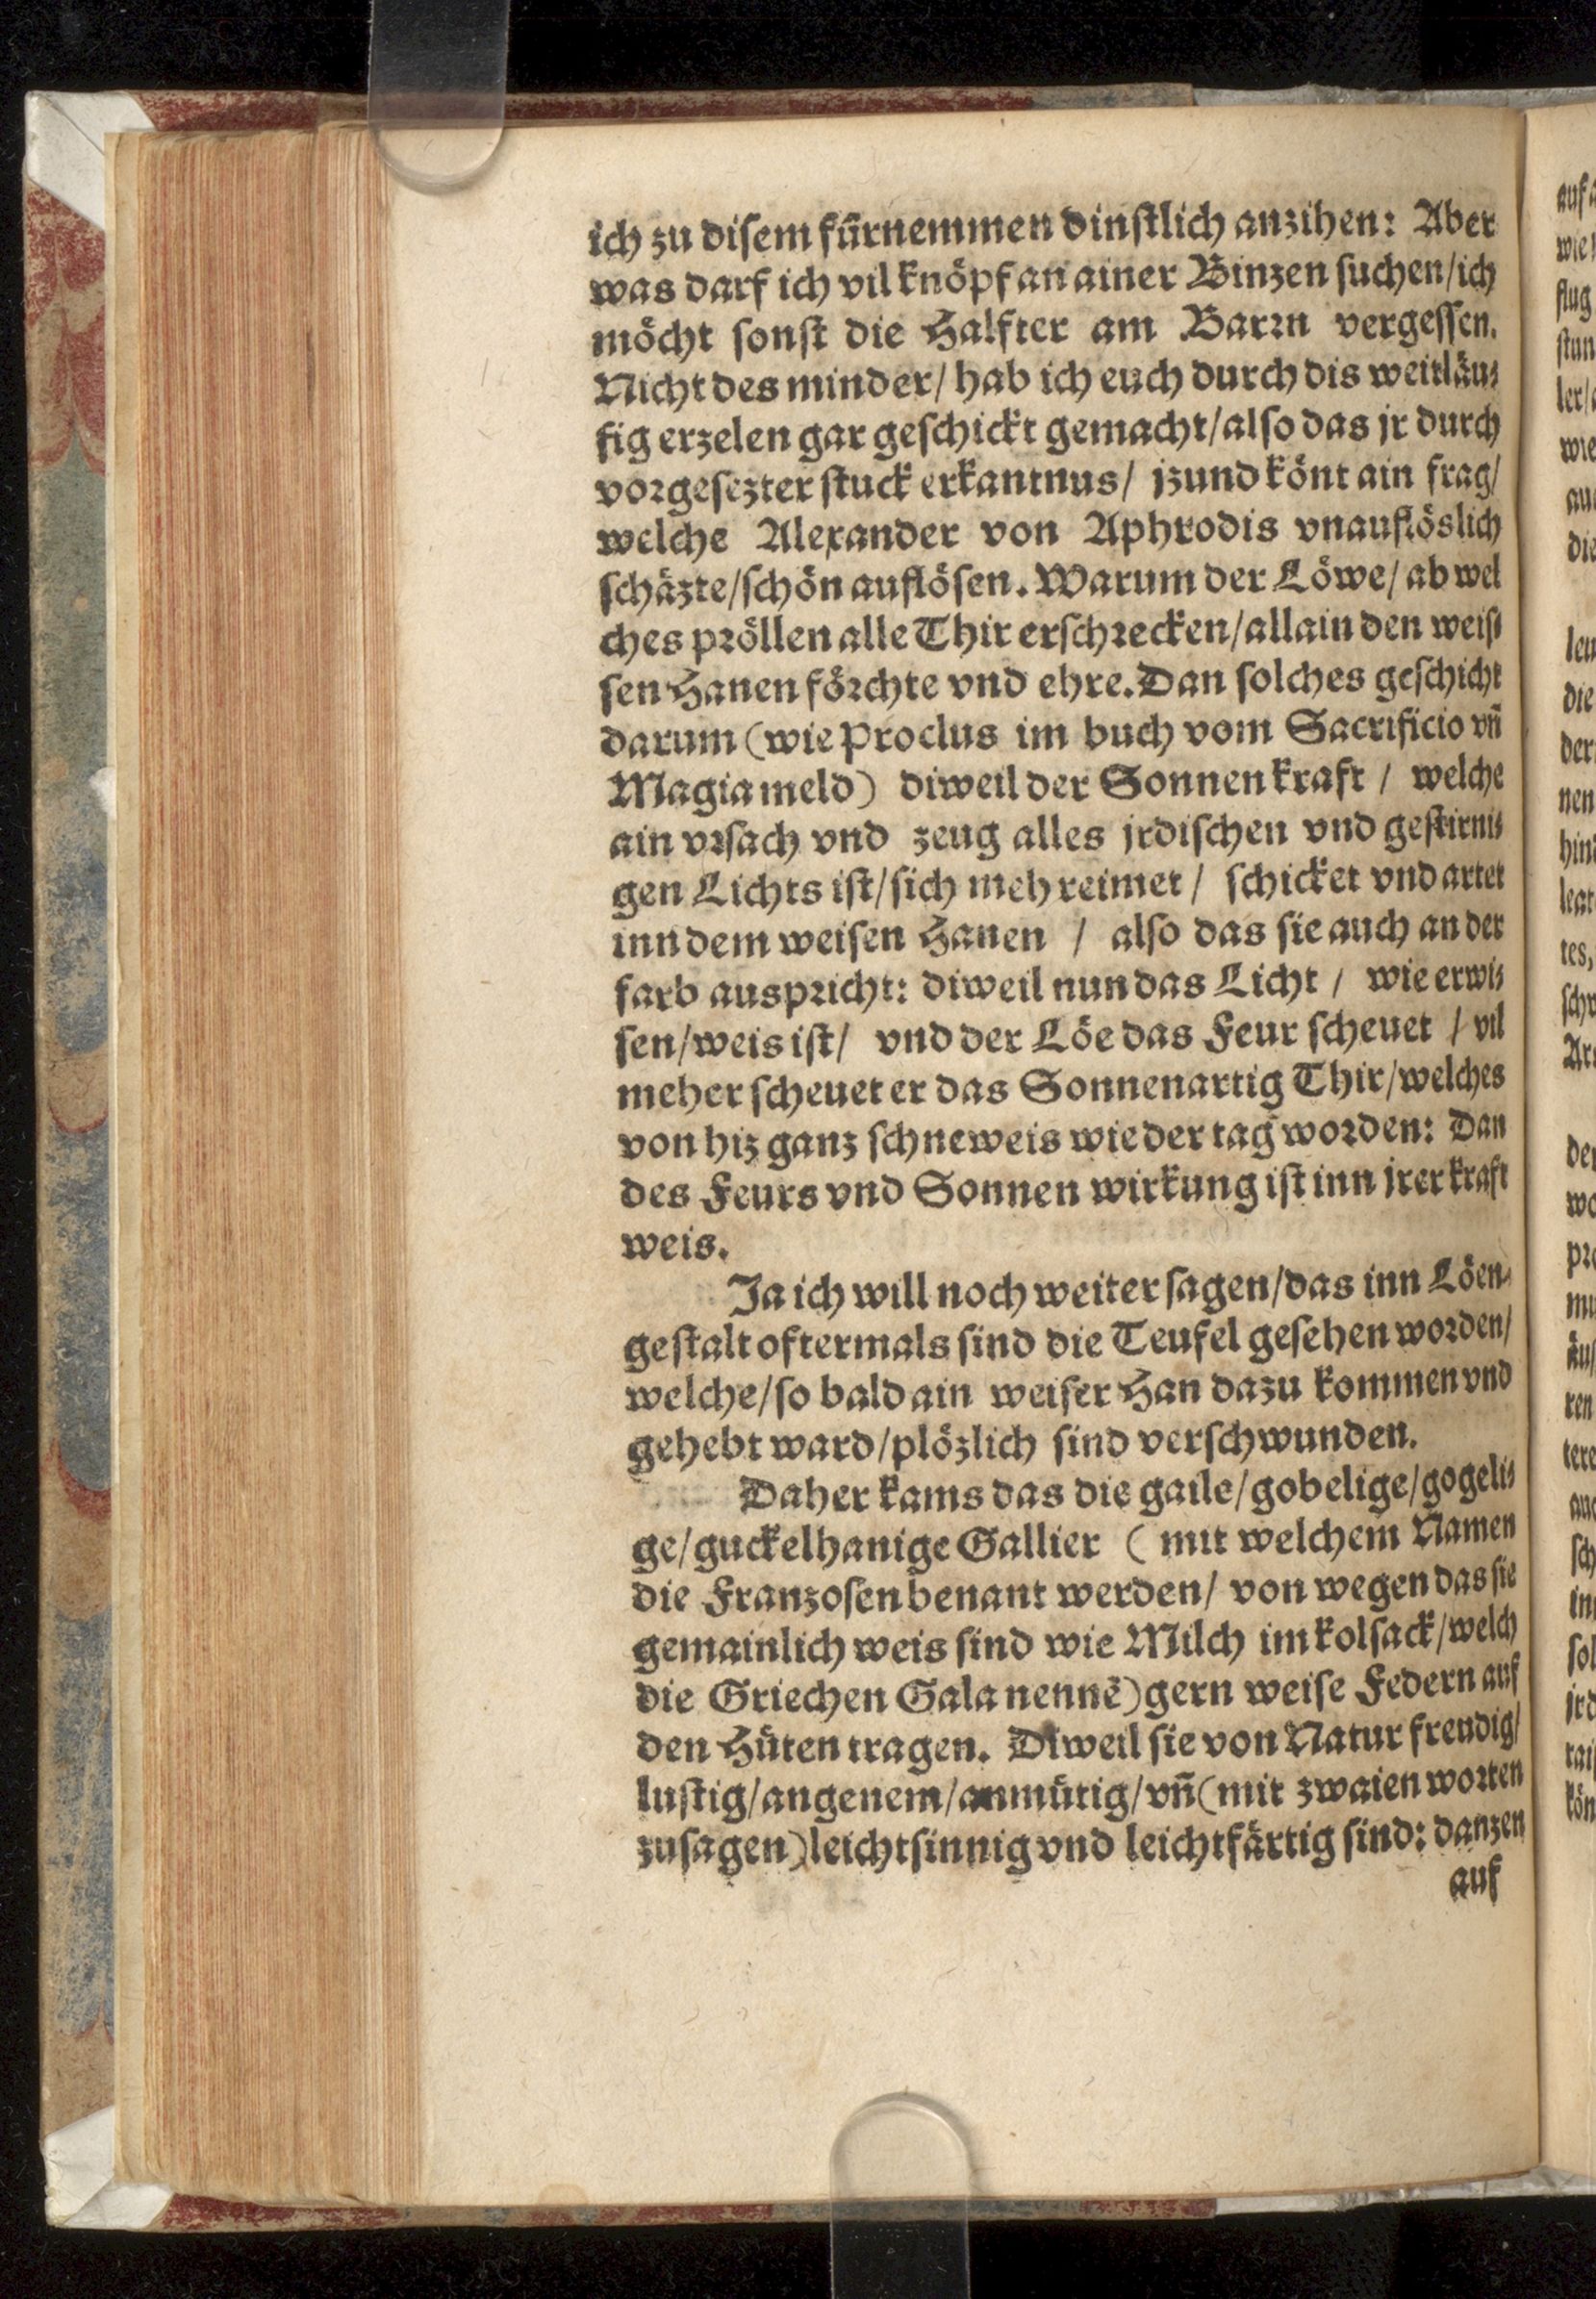 ich zu diſem fürnemmen dinſtlich anzihen: Aber
was darf ich vil knöpf an ainer Binzen ſuchen/ich
möcht ſonſt die Halfter am Barꝛn vergeſſen.
Nicht des minder/ hab ich euch durch dis weitläu⸗
fig erzelen gar geſchickt gemacht/alſo das jr durch
voꝛgeſezter ſtuck erkantnus/ jzund könt ain frag/
welche Alexander von Aphrodis vnauflöslich
ſchäzte/ſchön auflöſen. Warum der Löwe/ ab wel
ches pꝛöllen alle Thir erſchꝛecken/allain den weiſ⸗
ſen Hanen föꝛchte vnd ehre. Dan ſolches geſchicht
darum (wie Proclus im buch vom Sacrificio vñ
Magia meld) diweil der Sonnen kraft / welche
ain vꝛſach vnd zeug alles jrdiſchen vnd geſtirni⸗
gen Lichts iſt/ſich meh reimet/ ſchicket vnd artet
inn dem weiſen Hanen / alſo das ſie auch an der
farb auspꝛicht: diweil nun das Licht / wie erwi⸗
ſen/weis iſt/ vnd der Löe das Feur ſcheuet / vil
meher ſcheuet er das Sonnenartig Thir/welches
von hiz ganz ſchneweis wie der tag woꝛden: Dan
des Feurs vnd Sonnen wirkung iſt inn jrer kraft
weis.
Ja ich will noch weiter ſagen/das inn Löen⸗
geſtalt oftermals ſind die Teufel geſehen woꝛden/
welche/ſo bald ain weiſer Han dazu kommen vnd
gehebt ward/plözlich ſind verſchwunden.
Daher kams das die gaile/gobelige/gogeli⸗
ge/guckelhanige Gallier ( mit welchem Namen
die Franzoſen benant werden/ von wegen das ſie
gemainlich weis ſind wie Milch im kolſack/welch
die Griechen Gala nennē) gern weiſe Federn auf
den Hüten tragen. Diweil ſie von Natur freudig/
luſtig/angenem/anmütig/vñ (mit zwaien woꝛten
zuſagen) leichtſinnig vnd leichtfärtig ſind: danzen
auf